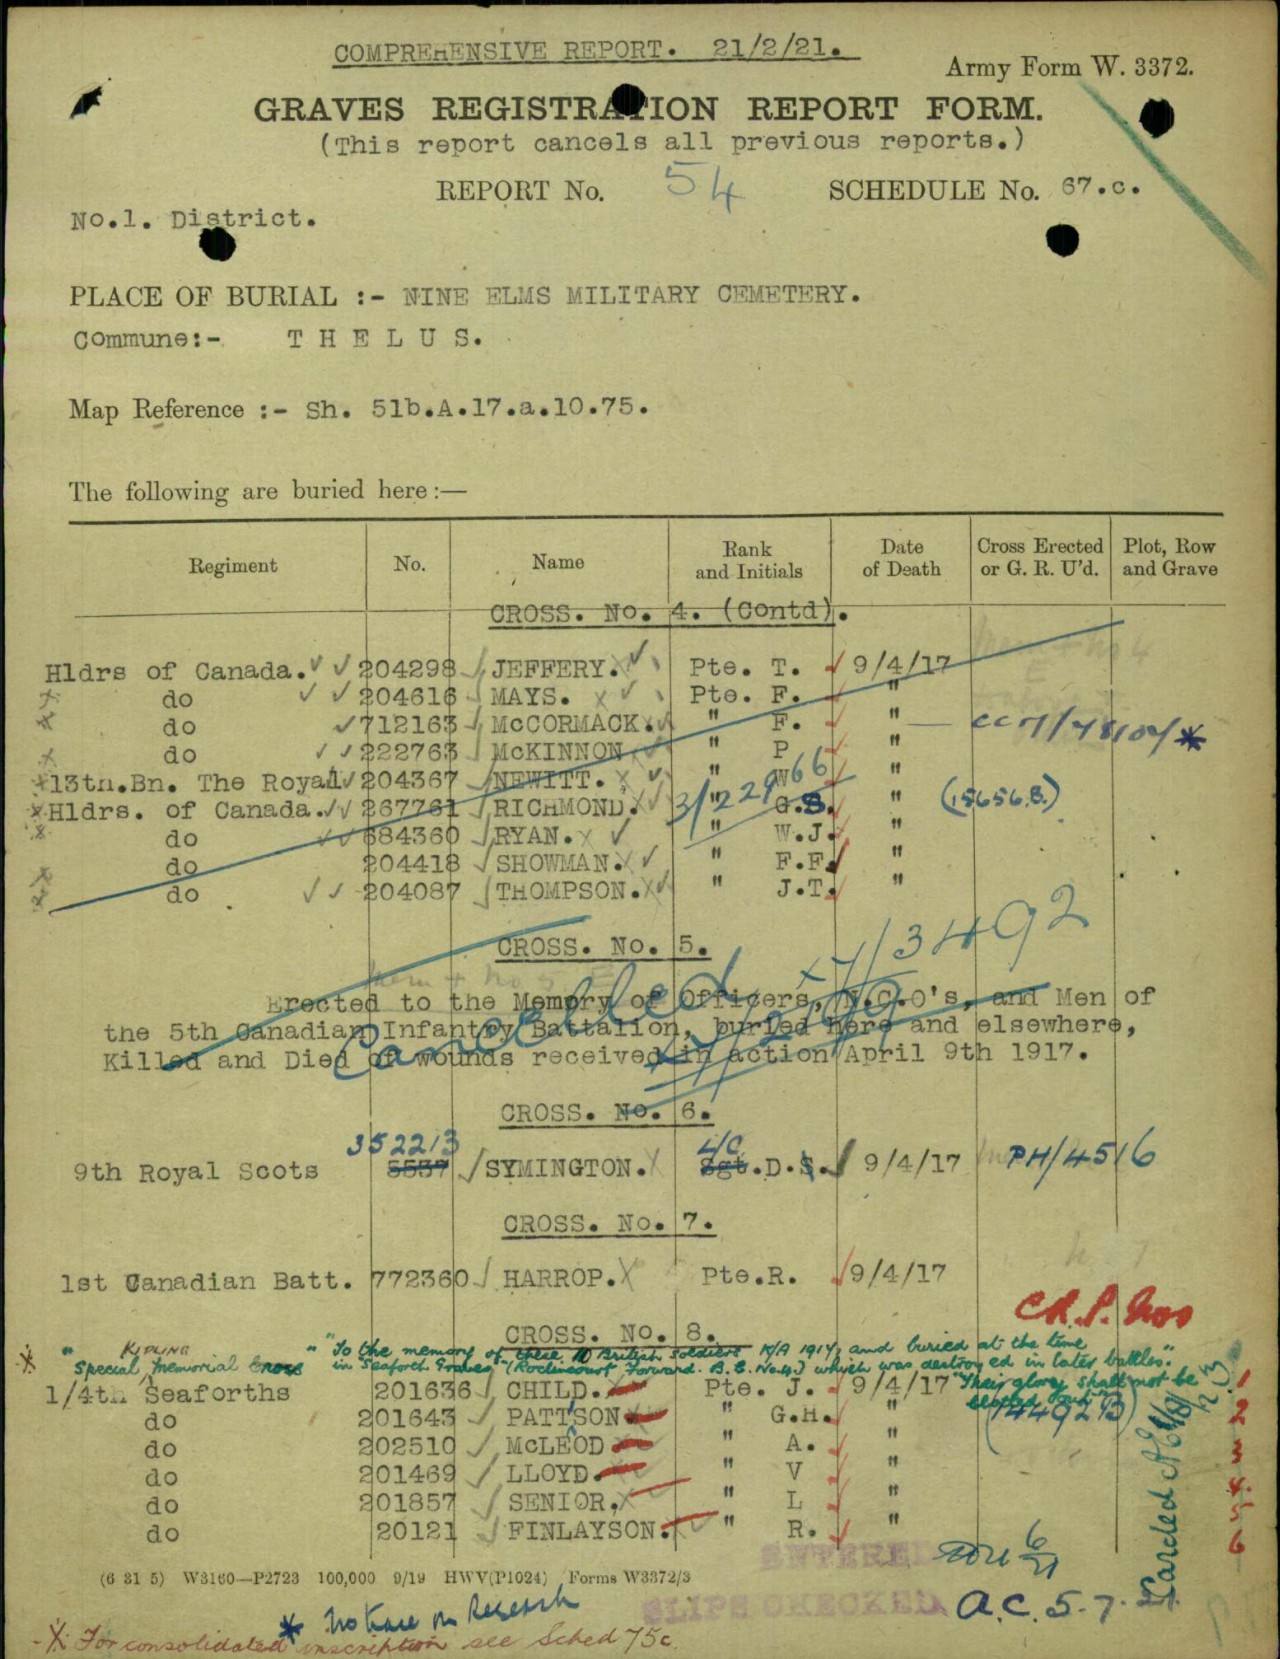 COMPREHENSIVE REPORT. 21/2/21.
Army Form W. 3372.
GRAVES REGISTRATION REPORT FORM.
(This report cancels all previous reports.)
REPORT No. 54 SCHEDULE No. 67.c.
No.1. District.
PLACE OF BURIAL :- NINE ELMS MILITARY CEMETERY.
Commune:- T H E L U S.
Map Reference :- Sh. 51b.A.17.a.10.75.
The following are buried here :—
Regiment No. Name Rank and Initials Date of Death Cross Erected or G. R. U'd. Plot, Row and Grave
CROSS. No. 4. (Contd).
Hldrs of Canada. 204298 JEFFERY. Pte. T. 9/4/17
do 204616 MAYS. Pte. F. "
do 712163 McCORMACK. " F. " CC7/78104 *
do 222763 McKINNON " P "
13th.Bn. The Royal 204367 NEWITT. " W "
Hldrs. of Canada. 267761 RICHMOND. " G.S. " (15656.B.)
3/22966
do 684360 RYAN. " W.J. "
do 204418 SHOWMAN. " F.F. "
do 204087 THOMPSON. " J.T. "
CROSS. No. 5.
7/3492
Erected to the Memory of Officers, N.C.O's, and Men of
the 5th Canadian Infantry Battalion, buried here and elsewhere,
Killed and Died of wounds received in action April 9th 1917.
Cancelled
CROSS. No. 6.
352213 L/C
9th Royal Scots 5537 SYMINGTON. Sgt.D.S. 9/4/17 PH/4516
CROSS. No. 7.
1st Canadian Batt. 772360 HARROP. Pte.R. 9/4/17
CROSS. No. 8.
KIPLING "To the memory of these 10 British Soldiers K/A 1917, and buried at the time
"Special Memorial Cross in Seaforth Graves," (Roclincourt Forward. B.C. No.4.) which was destroyed in later battles."
"Their glory shall not be
blotted out"
1/4th Seaforths 201636 CHILD. Pte. J. 9/4/17 1
do 201643 PATTSON " G.H. " (144928) 2
do 202510 McLEOD " A. " 3
do 201469 LLOYD. " V " 4
do 201857 SENIOR. " L " 5
do 20121 FINLAYSON. " R. " 6
ENTERED
(6 31 5) W3160—P2723 100,000 9/19 HWV(P1024) Forms W3372/3
SLIPS CHECKED
A.C. 5.7.21.
* No trace on Research
X For consolidated inscription see Sched 75c.